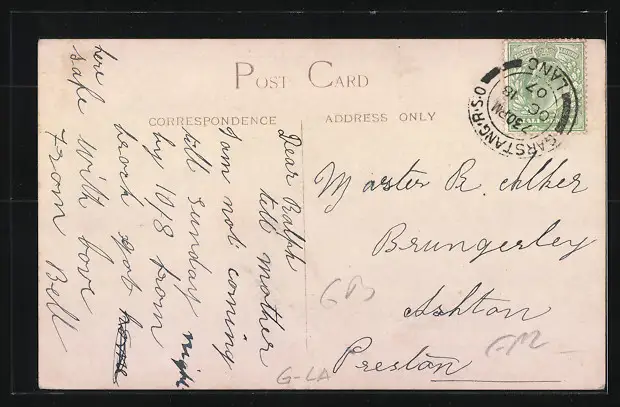 POST CARD
CORRESPONDENCE
ADDRESS ONLY
Dear Ralph
tell mother
I am not coming
till sunday night
by 10/8 from
brock got
here
safe with love
From Bell
GARSTANG R.S.O.
7 30 PM
OC 18
07
LANC
Master R. Alker
Brungerley
Ashton
Preston
GB
G-LA